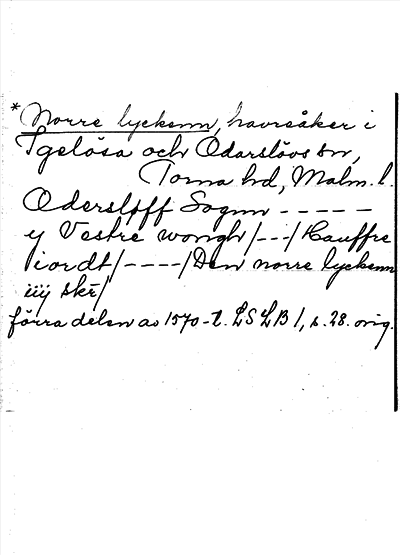 * Norre lyckenn, havreåker i
Igelösa och Odarslövs snr,
Torna hd, Malm. l.
Odersløff Sognn - - - - -
y Vestre wongh/---/Hauffre
iordt/----/Den norre lyckenn
iiij skr/
förra delen av 1570-t. LSLB 1, s. 28. orig.